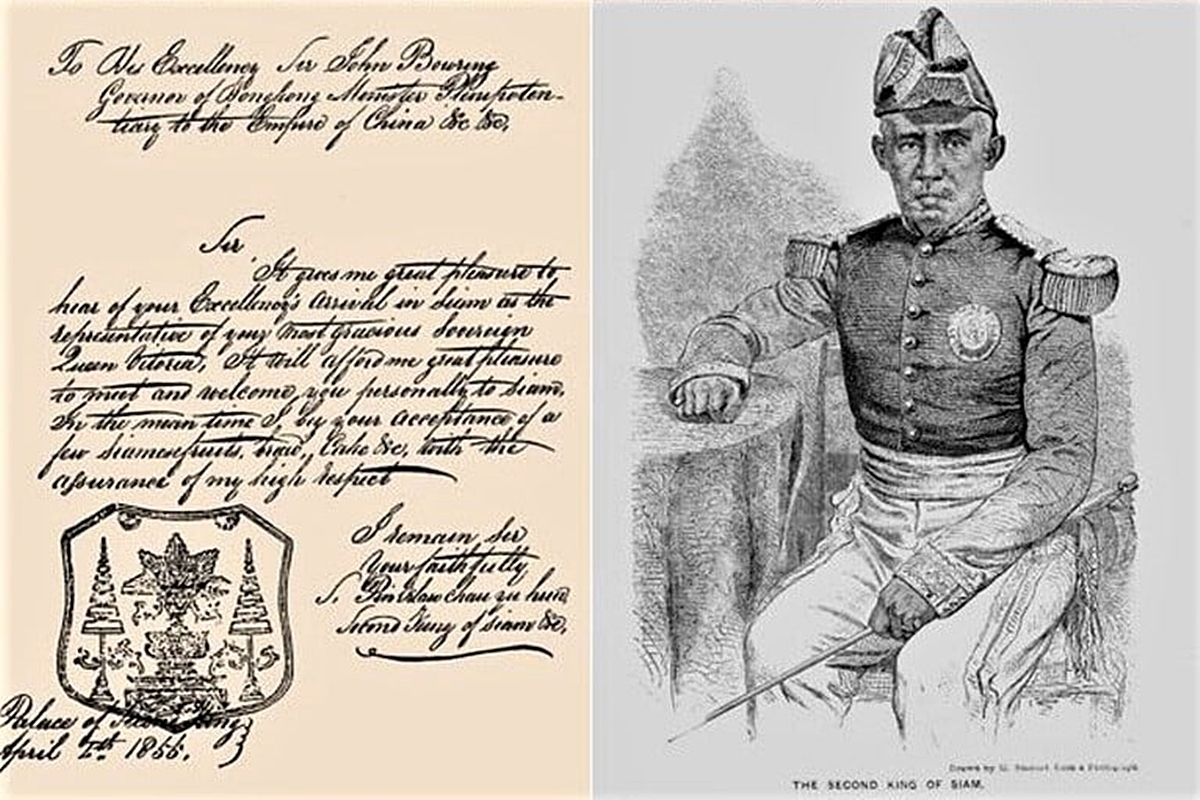 To His Excellency Sir John Bowring
Governor of Hongkong Minister Plenipoten-
tiary to the Empire of China &c &c,
Sir,
It gives me great pleasure to
hear of your Excellency's arrival in Siam as the
representative of your Most gracious Sovereign
Queen Vitoria, It will afford me great pleasure
to meet and welcome you personally to Siam.
In the mean time I, beg your acceptance of a
few siamese fruits, Cake &c, with the
assurance of my high respect
I remain, Sir
Your faithfully
S.
Second King of Siam &c,
Palace of King
April 4th 1855.
Drawn by G. from a Photograph
THE SECOND KING OF SIAM.